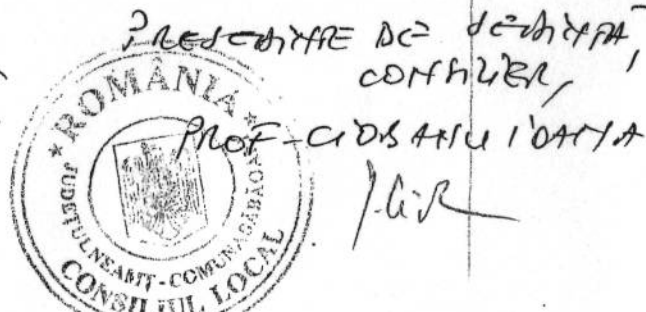 PREȘEDINTE DE ȘEDINȚĂ,
CONSILIER,
PROF. CIOBANU IOANA
* ROMÂNIA *
JUDEȚUL NEAMȚ - COMUNA SĂBĂOANI
CONSILIUL LOCAL